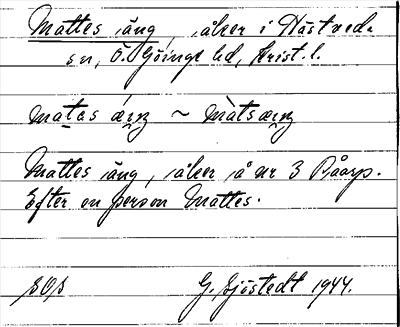 Mattes äng, åker i Hästveda
sn, Ö. Göinge hd, Krist. l.
matas ä̀ŋ ~ màtsæŋ
Mattes äng, åker å nr 3 Råarp.
Efter en person Mattes.
SOS G. Sjöstedt 1944.